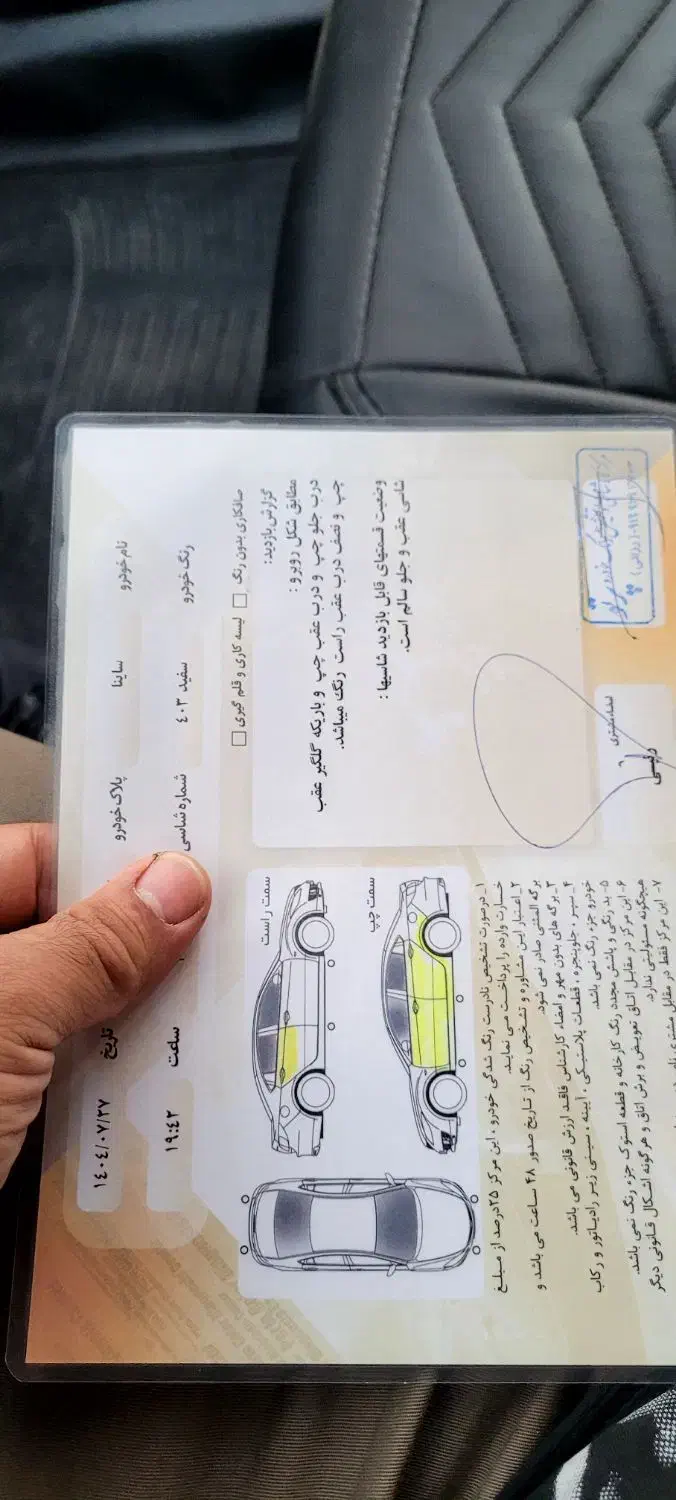 نام خودرو
ساینا
پلاک خودرو
تاریخ
۱٤۰٤/۰۷/۲۷
رنگ خودرو
سفید ٤۰۳
شماره شاسی
ساعت
۱۹:٤۲
صافکاری بدون رنگ
لیسه کاری و قلم گیری
گزارش بازدید :
مطابق شکل روبرو :
درب جلو چپ و درب عقب چپ و باریکه گلگیر عقب
چپ و نصف درب عقب راست رنگ میباشد.
وضعیت قسمتهای قابل بازدید شاسیها :
شاسی عقب و جلو سالم است.
امضاء مشتری
سمت راست
سمت چپ
۱_ درصورت تشخیص نادرست رنگ شدگی خودرو ، این مرکز ۲۵درصد از مبلغ
خسارت وارده را پرداخت می نمایند.
۲_ اعتبار این مشاوره و تشخیص رنگ از تاریخ صدور ۴۸ ساعت می باشد و
برگه المثنی صادر نمی شود.
۳_ برگه های بدون مهر و امضاء کارشناس فاقد ارزش قانونی می باشد.
۴_ سپر ، جلوپنجره ، قطعات پلاستیکی ، آیینه ، سینی زیر رادیاتور و رکاب
خودرو جزء رنگ نمی باشد.
۵_ بد رنگی و پاشش مجدد رنگ کارخانه و قطعه استوک جزء رنگ نمی باشد.
۶_ این مرکز در مقابل اتاق تعویض و برش اتاق و هرگونه اشکال قانونی دیگر
هیچگونه مسئولیتی ندارد.
۷_ این مرکز فقط در مقابل مشتری